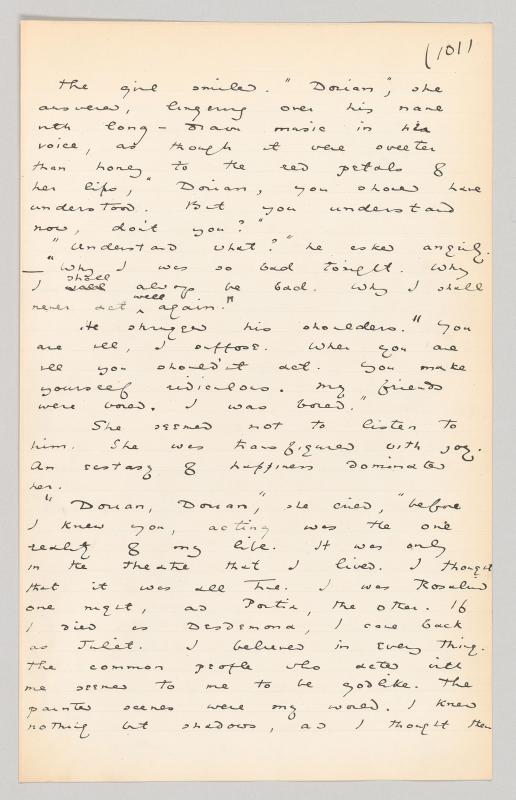 (101)
The girl smiled. "Dorian", she
answered, lingering over his name
with long-drawn music in her
voice, as though it were sweeter
than honey to the red petals of
her lips, "Dorian, you should have
understood. But you understand
now, don't you?"
"Understand what?" he asked angrily.
"Why I was so bad tonight. Why
I shall always be bad. Why I shall
never act well again."
He shrugged his shoulders. "You
are ill, I suppose. When you are
ill you shouldn't act. You make
yourself ridiculous. My friends
were bored. I was bored."
She seemed not to listen to
him. She was transfigured with joy.
An ecstasy of happiness dominated
her.
"Dorian, Dorian," she cried, "before
I knew you, acting was the one
reality of my life. It was only
in the theatre that I lived. I thought
that it was all true. I was Rosalind
one night, and Portia, the other. If
I died as Desdemona, I came back
as Juliet. I believed in every thing.
The common people who acted with
me seemed to me to be godlike. The
painted scenes were my world. I knew
nothing but shadows, and I thought them